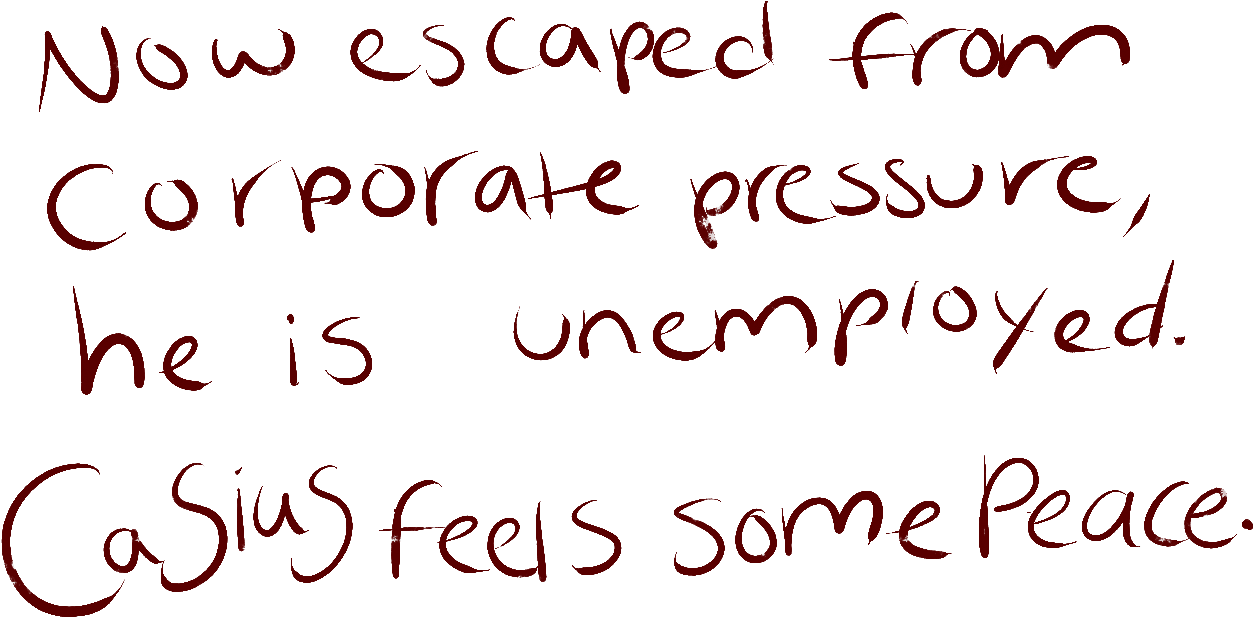 Now escaped from
corporate pressure,
he is unemployed.
Casius feels some Peace.